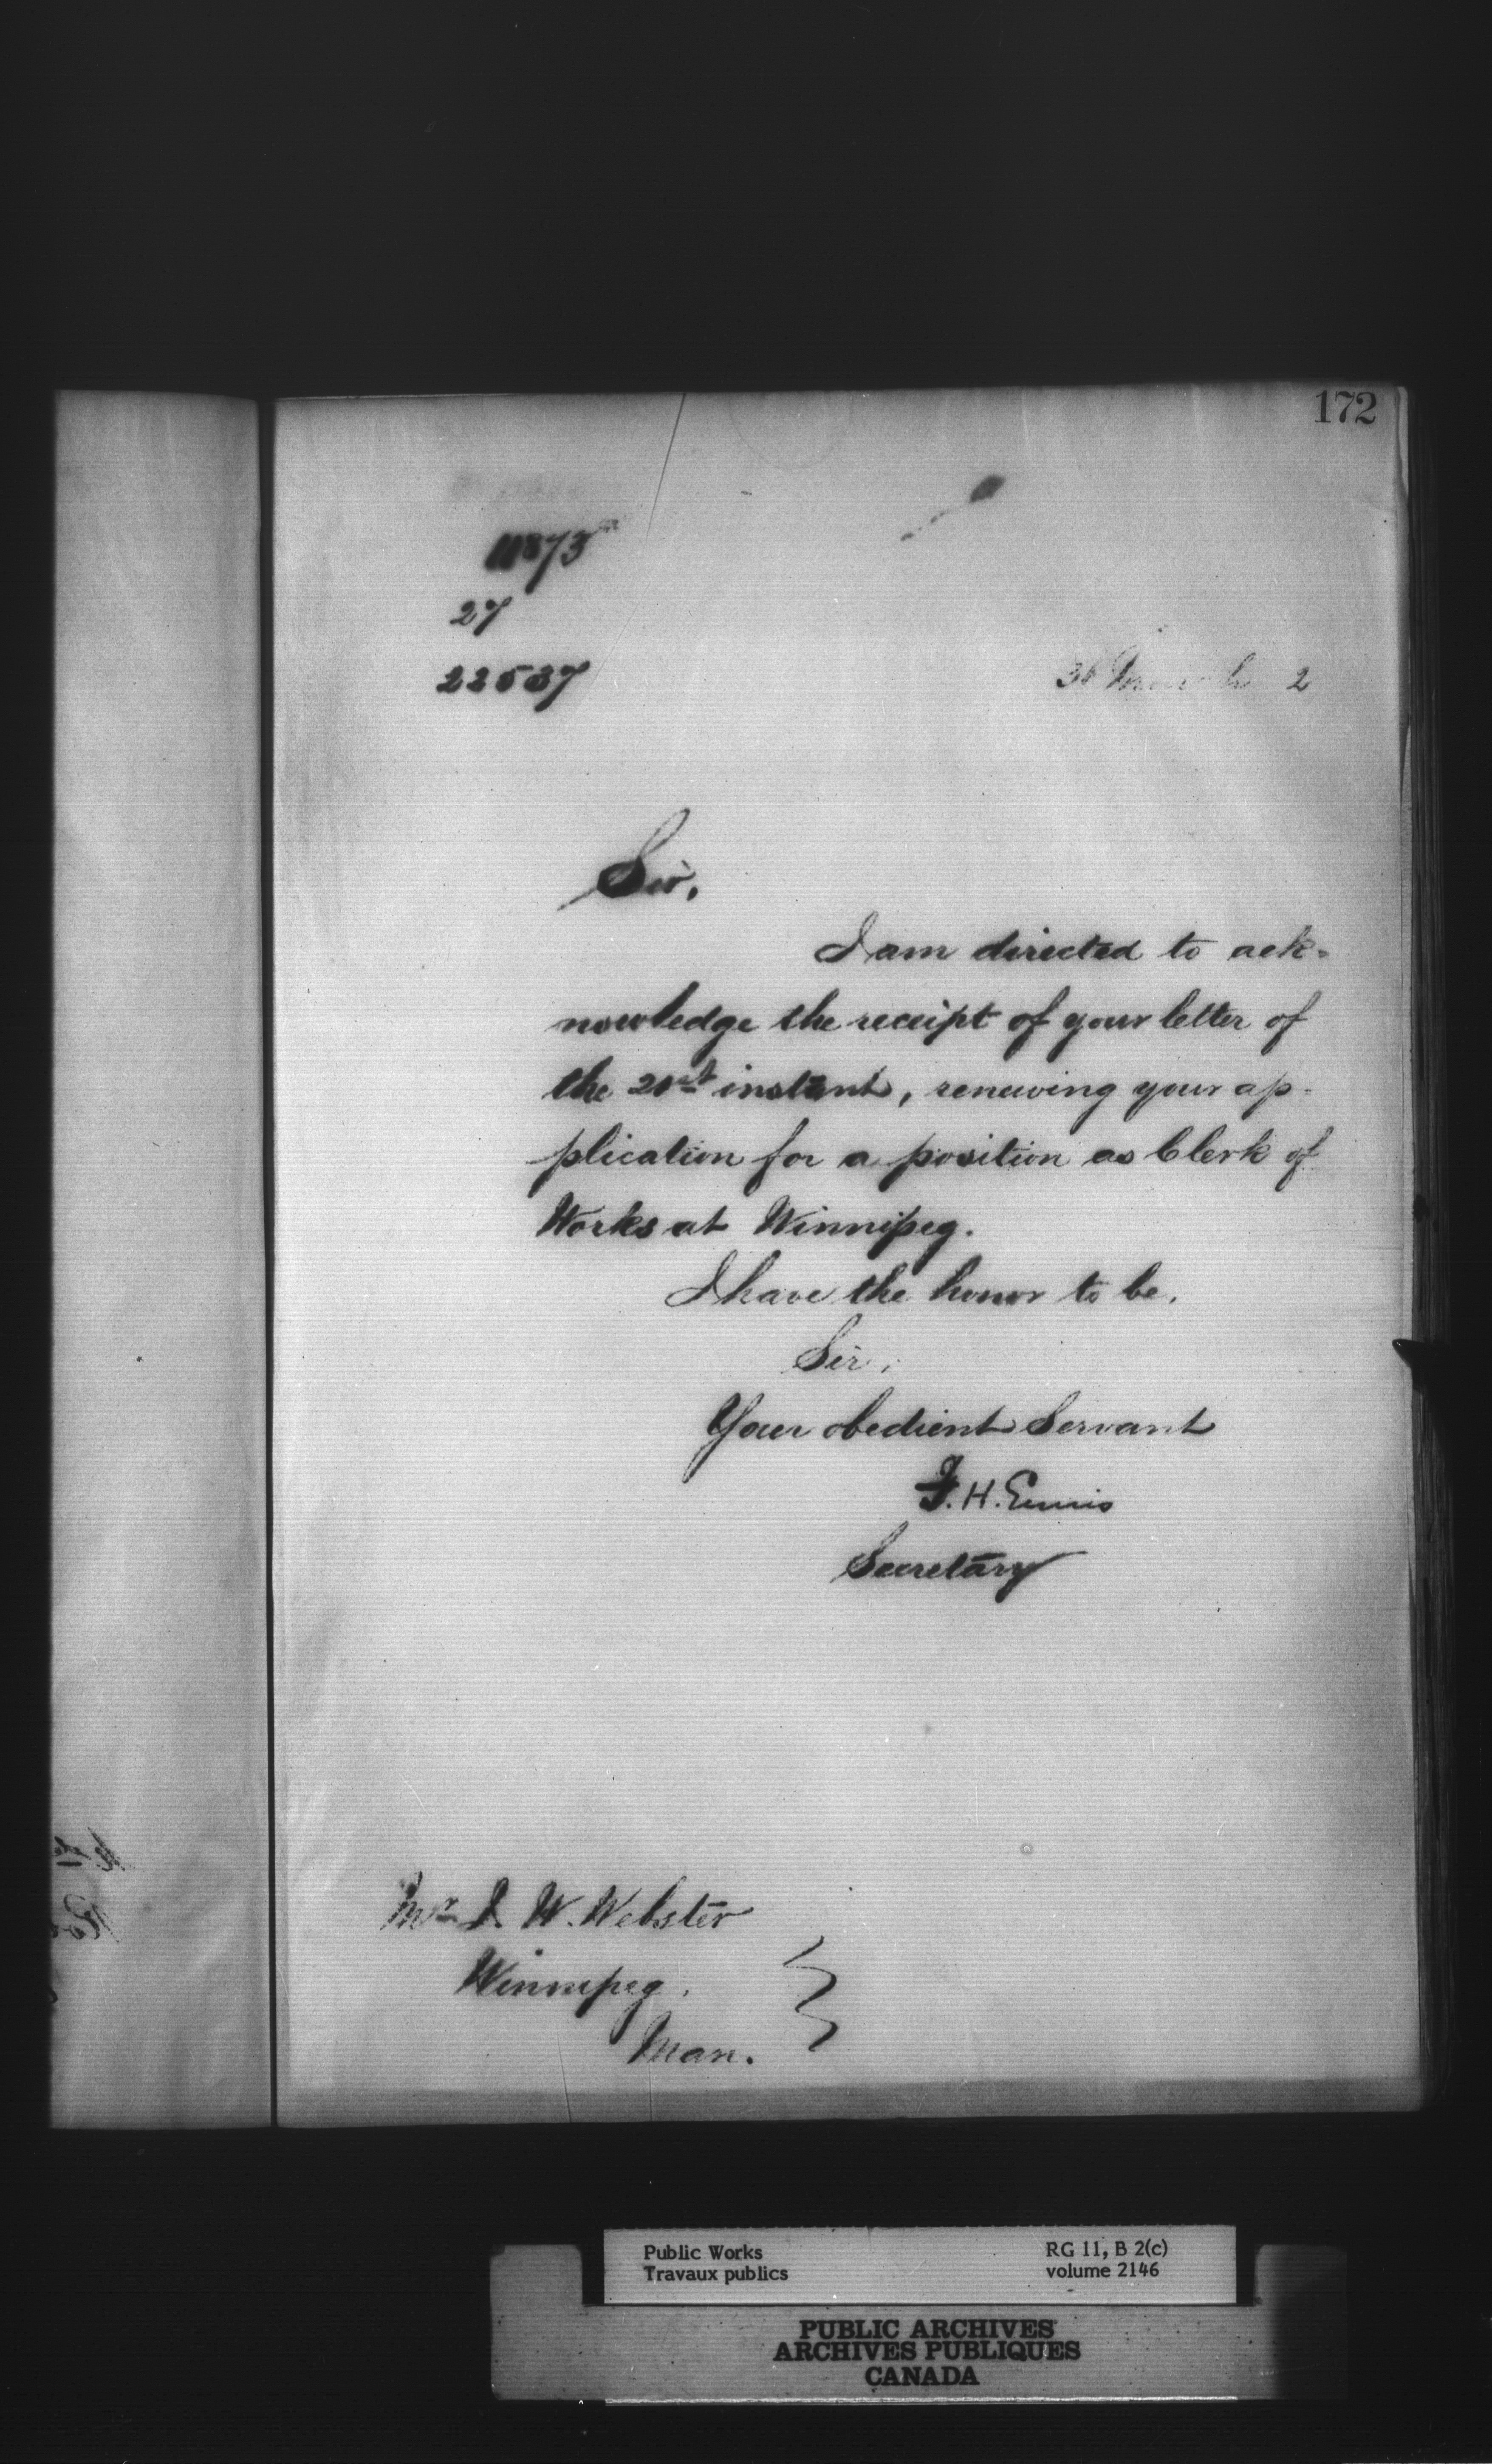 172
11873
27
22537
31 March 2
Sir,
I am directed to ack-
nowledge the receipt of your letter of
the 21st instant, renewing your ap-
plication for a position as Clerk of
Works at Winnipeg.
I have the honor to be,
Sir,
Your obedient Servant
F. H. Ennis
Secretary
Mr J. W. Webster
Winnipeg,
Man.
Public Works
Travaux publics
RG 11, B 2(c)
volume 2146
PUBLIC ARCHIVES
ARCHIVES PUBLIQUES
CANADA